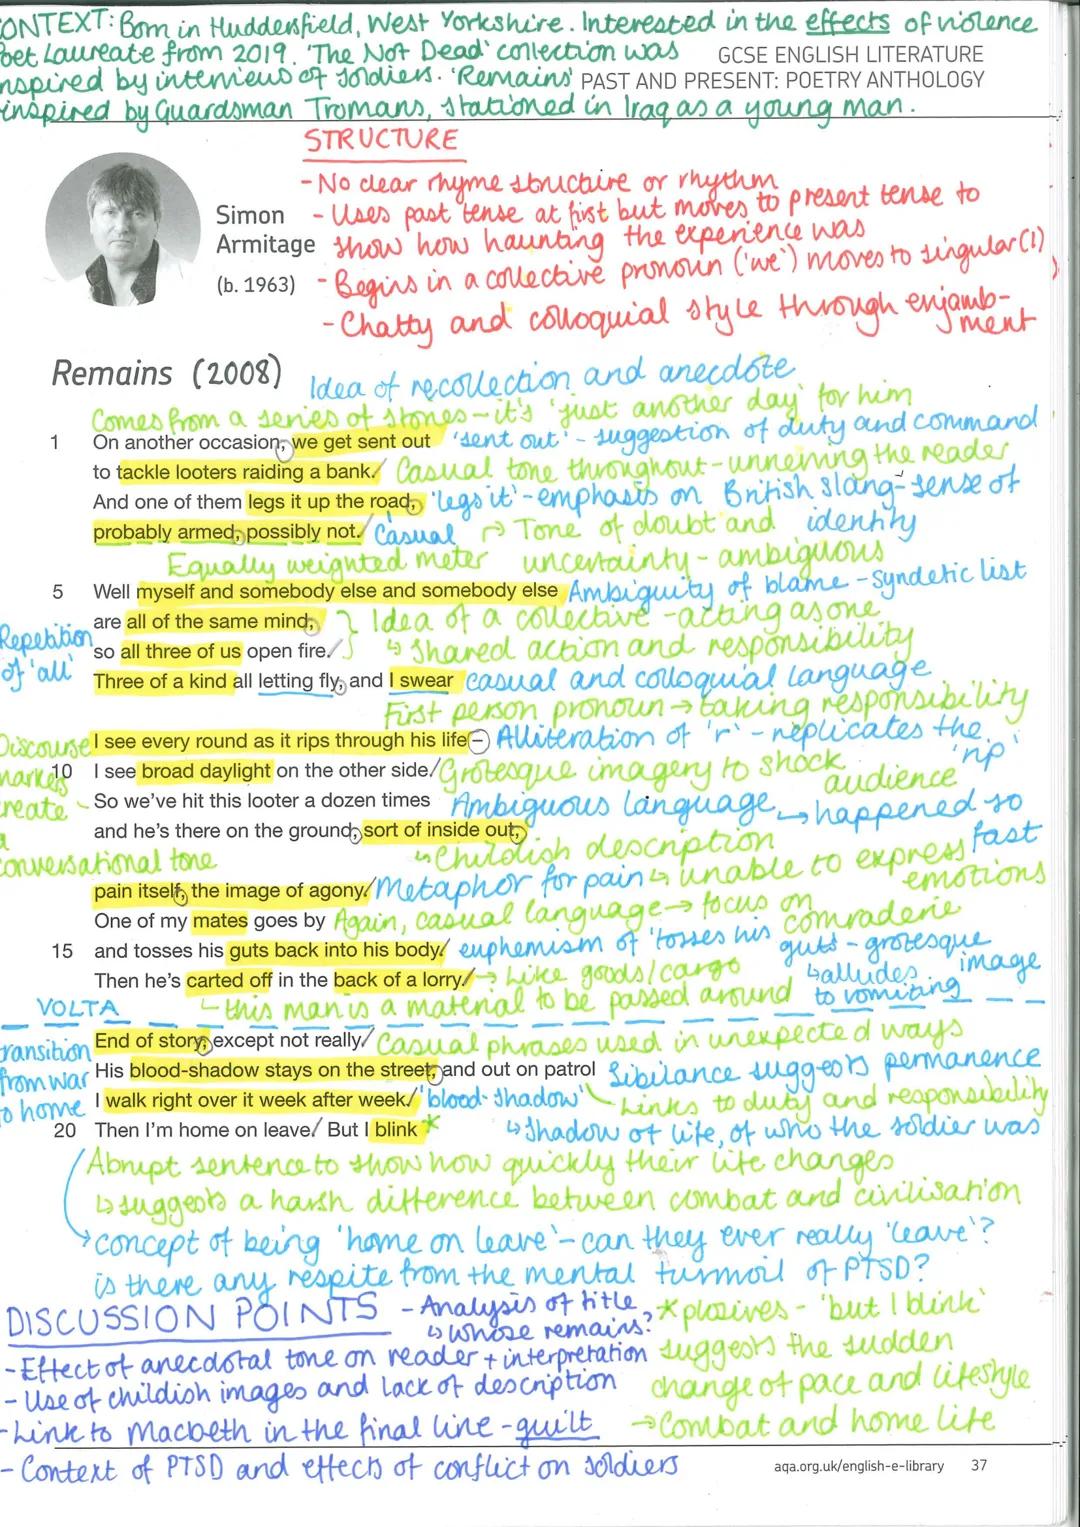 ONTEXT: Born in Huddersfield, West Yorkshire. Interested in the effects of violence
oet Laureate from 2019. 'The Not Dead' collection was
GCSE ENGLISH LITERATURE
nspired by interviews of soldiers. 'Remains'
PAST AND PRESENT: POETRY ANTHOLOGY
inspired by Guardsman Tromans, stationed in Iraq as a young man.
STRUCTURE
- No clear rhyme structure or rhythm
- Uses past tense at first but moves to present tense to
show how haunting the experience was
- Begins in a collective pronoun ('we') moves to singular (I)
- Chatty and colloquial style through enjamb-
ment
Simon
Armitage
(b. 1963)
Remains (2008)
Idea of recollection and anecdote
Comes from a series of stories - it's 'just another day' for him
1 On another occasion, we get sent out
'sent out' - suggestion of duty and command
to tackle looters raiding a bank.
Casual tone throughout - unnerving the reader
And one of them legs it up the road,
'legs it' - emphasis on British slang - sense of
identity
probably armed, possibly not.
Casual
→ Tone of doubt and
uncertainty - ambiguous
Equally weighted meter
5 Well myself and somebody else and somebody else
Ambiguity of blame - Syndetic list
are all of the same mind,
Idea of a collective - acting as one
Repetition
of 'all'
so all three of us open fire.
↳ Shared action and responsibility
Three of a kind all letting fly, and I swear
casual and colloquial language
First person pronoun → taking responsibility
Discourse
markers
create
a
conversational tone
I see every round as it rips through his life –
Alliteration of 'r' - replicates the
'rip'
10 I see broad daylight on the other side.
Grotesque imagery to shock
audience
So we've hit this looter a dozen times
Ambiguous language → happened so
fast
and he's there on the ground, sort of inside out,
↳ Childish description
↳ unable to express
emotions
pain itself, the image of agony.
Metaphor for pain
One of my mates goes by
Again, casual language → focus on
comraderie
15 and tosses his guts back into his body.
euphemism of 'tosses his
guts - grotesque
image
↳ alludes
to vomiting
Then he's carted off in the back of a lorry.
→ Like goods/cargo
↳ this man is a material to be passed around
VOLTA
transition
from war
to home
End of story, except not really.
Casual phrases used in unexpected ways
His blood-shadow stays on the street, and out on patrol
Sibilance suggests permanence
I walk right over it week after week.
'blood-shadow'
Links to duty and responsibility
20 Then I'm home on leave. But I blink *
↳ Shadow of life, of who the soldier was
Abrupt sentence to show how quickly their life changes
↳ suggests a harsh difference between combat and civilisation
→ concept of being 'home on leave' - can they ever really 'leave'?
is there any respite from the mental turmoil of PTSD?
DISCUSSION POINTS
- Analysis of title,
↳ whose remains?
- Effect of anecdotal tone on reader + interpretation
- Use of childish images and lack of description
- Link to Macbeth in the final line - guilt
- Context of PTSD and effects of conflict on soldiers
* plosives - 'but I blink'
suggests the sudden
change of pace and lifestyle
→ Combat and home life
aqa.org.uk/english-e-library 37